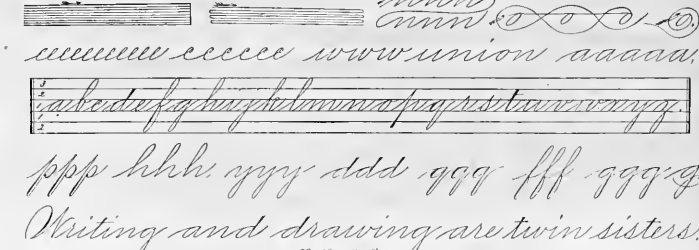 eeeeeeeeee cccccc wwww union aaaaa,
3
2
1
1
2
abcdefghijklmnopqrstuvwxyz.
ppp hhh. yyy ddd qqq fff gggg
Writing and drawing are twin sisters.